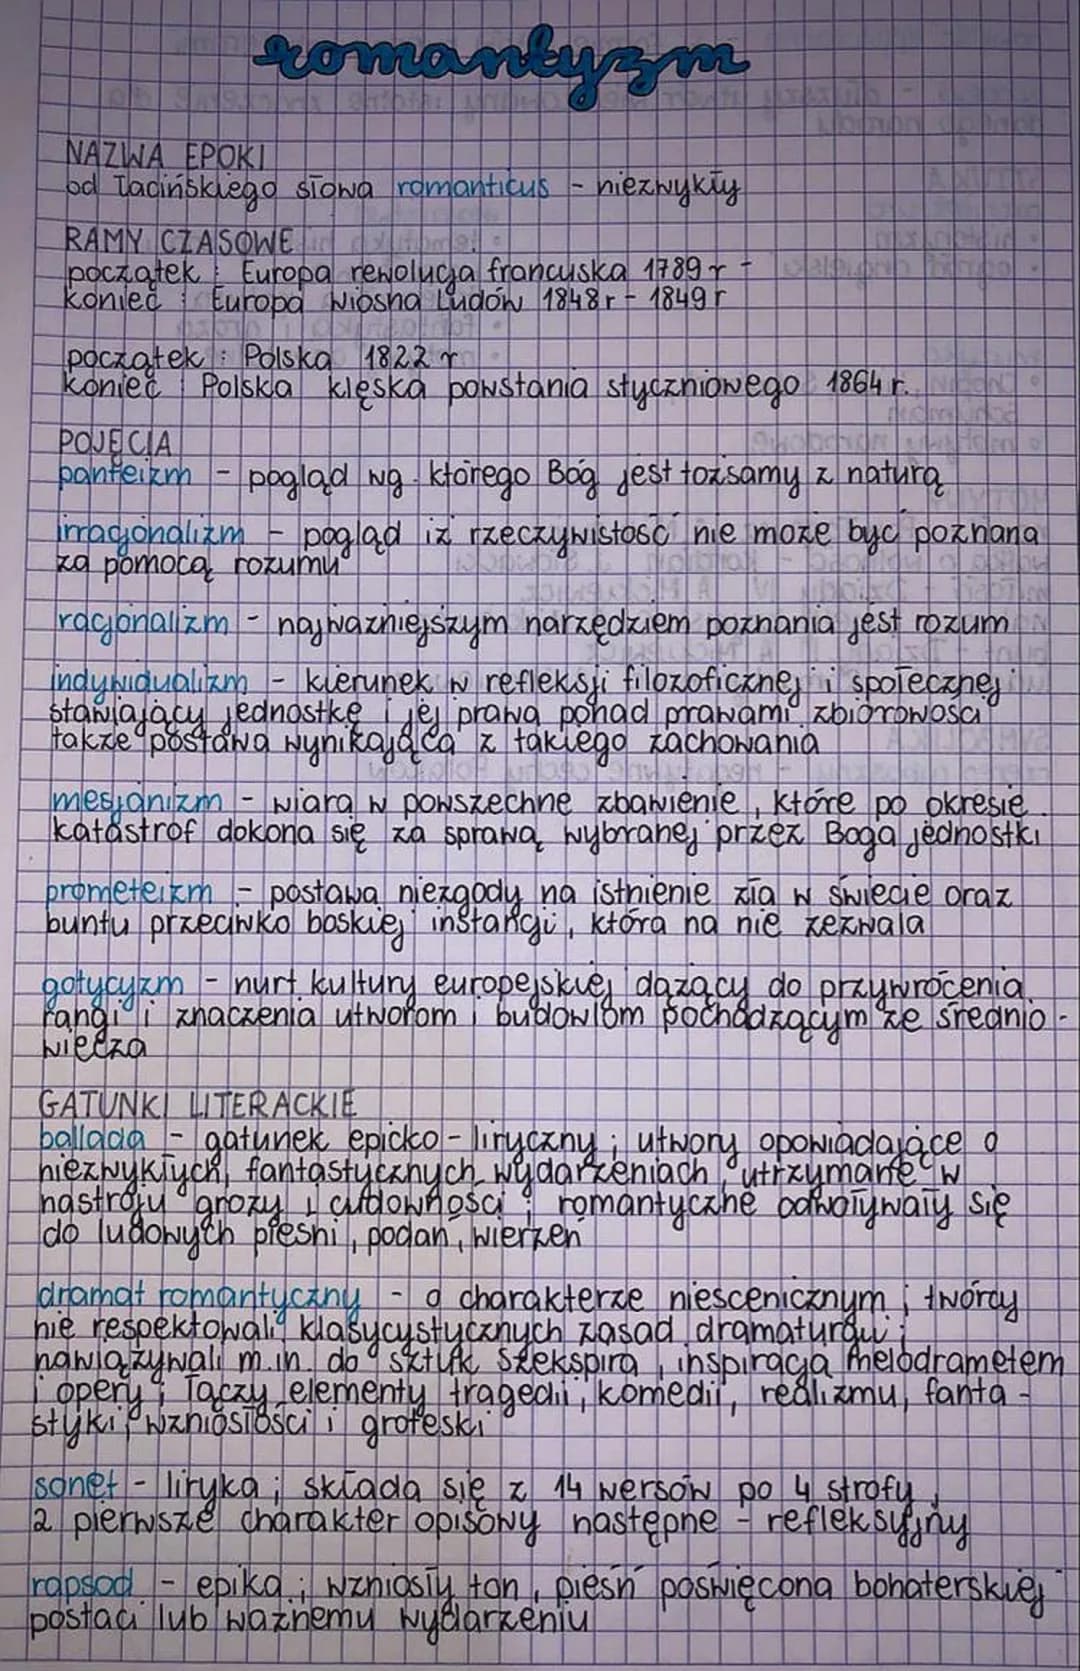 romantyzm
NAZWA EPOKI
od łacińskiego słowa romanticus - niezwykły
RAMY CZASOWE
początek : Europa rewolucja francuska 1789 r -
koniec : Europa Wiosna Ludów 1848r - 1849 r
początek : Polska 1822 r
koniec : Polska klęska powstania styczniowego 1864 r.
POJĘCIA
panteizm - pogląd wg. którego Bóg jest tożsamy z naturą
irracjonalizm - pogląd iż rzeczywistość nie może być poznana
za pomocą rozumu
racjonalizm - najważniejszym narzędziem poznania jest rozum
indywidualizm - kierunek w refleksji filozoficznej i społecznej
stawiający jednostkę i jej prawa ponad prawami zbiorowości
także postawa wynikająca z takiego zachowania
mesjanizm - wiara w powszechne zbawienie, które po okresie
katastrof dokona się za sprawą wybranej przez Boga jednostki
prometeizm - postawa niezgody na istnienie zła w świecie oraz
buntu przeciwko boskiej instancji, która na nie zezwala
gotycyzm - nurt kultury europejskiej dążący do przywrócenia
rangi i znaczenia utworom i budowlom pochodzącym ze średnio-
wiecza
GATUNKI LITERACKIE
ballada - gatunek epicko-liryczny; utwory opowiadające o
niezwykłych, fantastycznych wydarzeniach, utrzymane w
nastroju grozy i cudowności; romantyczne odwoływały się
do ludowych pieśni, podań, wierzeń
dramat romantyczny - o charakterze niescenicznym; twórcy
nie respektowali klasycystycznych zasad dramaturgii;
nawiązywali m.in. do sztuk Szekspira, inspiracja melodrametem
i opery; łączy elementy tragedii, komedii, realizmu, fanta-
styki, wzniosłości i groteski
sonet - liryka; składa się z 14 wersów po 4 strofy,
2 pierwsze charakter opisowy następne - refleksyjny
rapsod - epika; wzniosły ton, pieśń poświęcona bohaterskiej
postaci lub ważnemu wydarzeniu